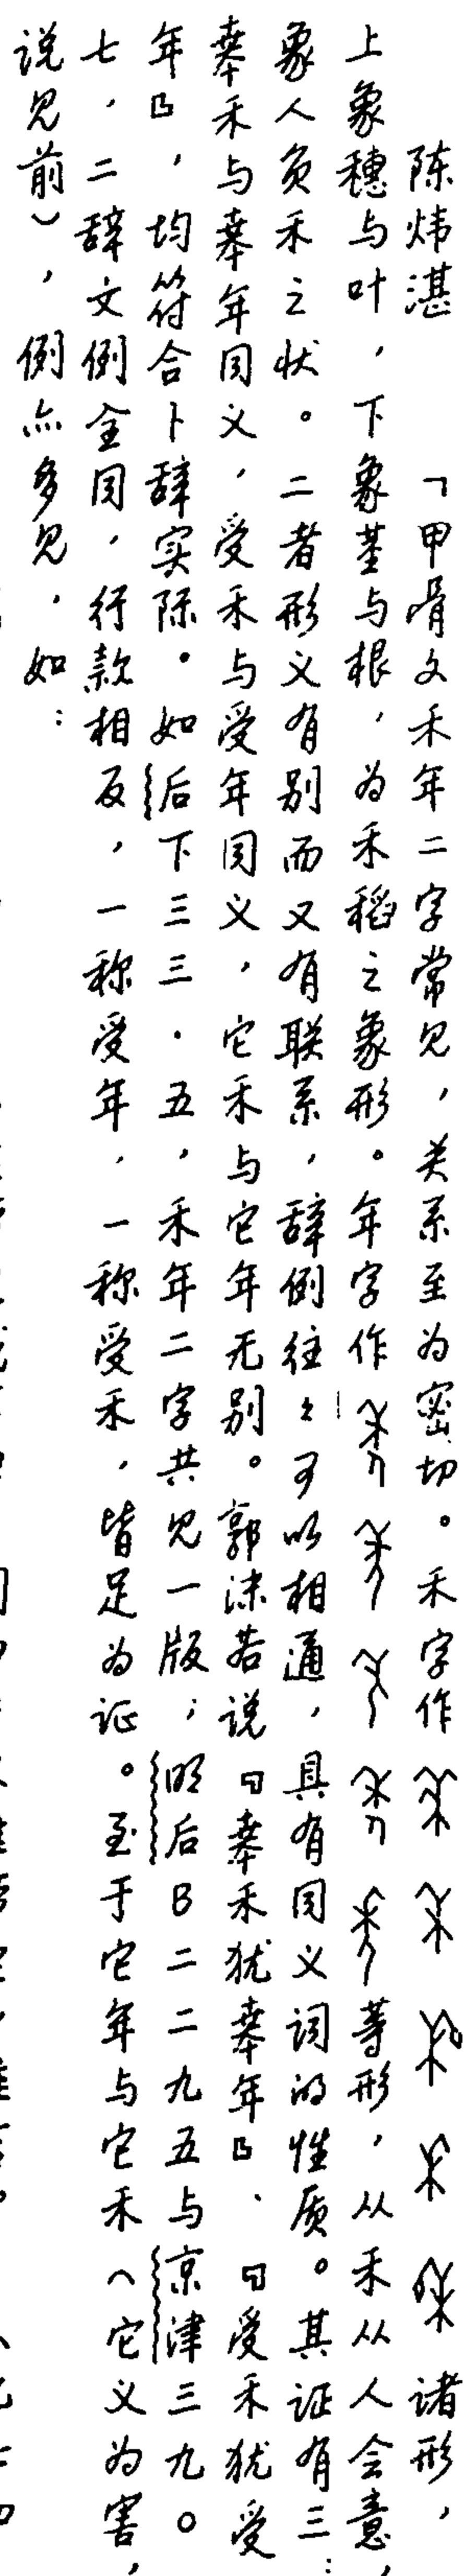 陈炜湛 「甲骨文禾年二字常见，关系至为密切。禾字作诸形，
上象穗与叶，下象茎与根，为禾稻之象形。年字作等形，从禾从人会意，
象人负禾之状。二者形义有别而又有联系，辞例往々可以相通，具有同义词的性质。其证有三：
𠦪禾与𠦪年同义，受禾与受年同义，它禾与它年无别。郭沫若说『𠦪禾犹𠦪年』、『受禾犹受
年』，均符合卜辞实际。如后下三三·五，禾年二字共见一版；明后B二二九五与京津三九〇
七，二辞文例全同，行款相反，一称受年，一称受禾，皆足为证。至于它年与它禾（它义为害，
说见前），例亦多见，如：